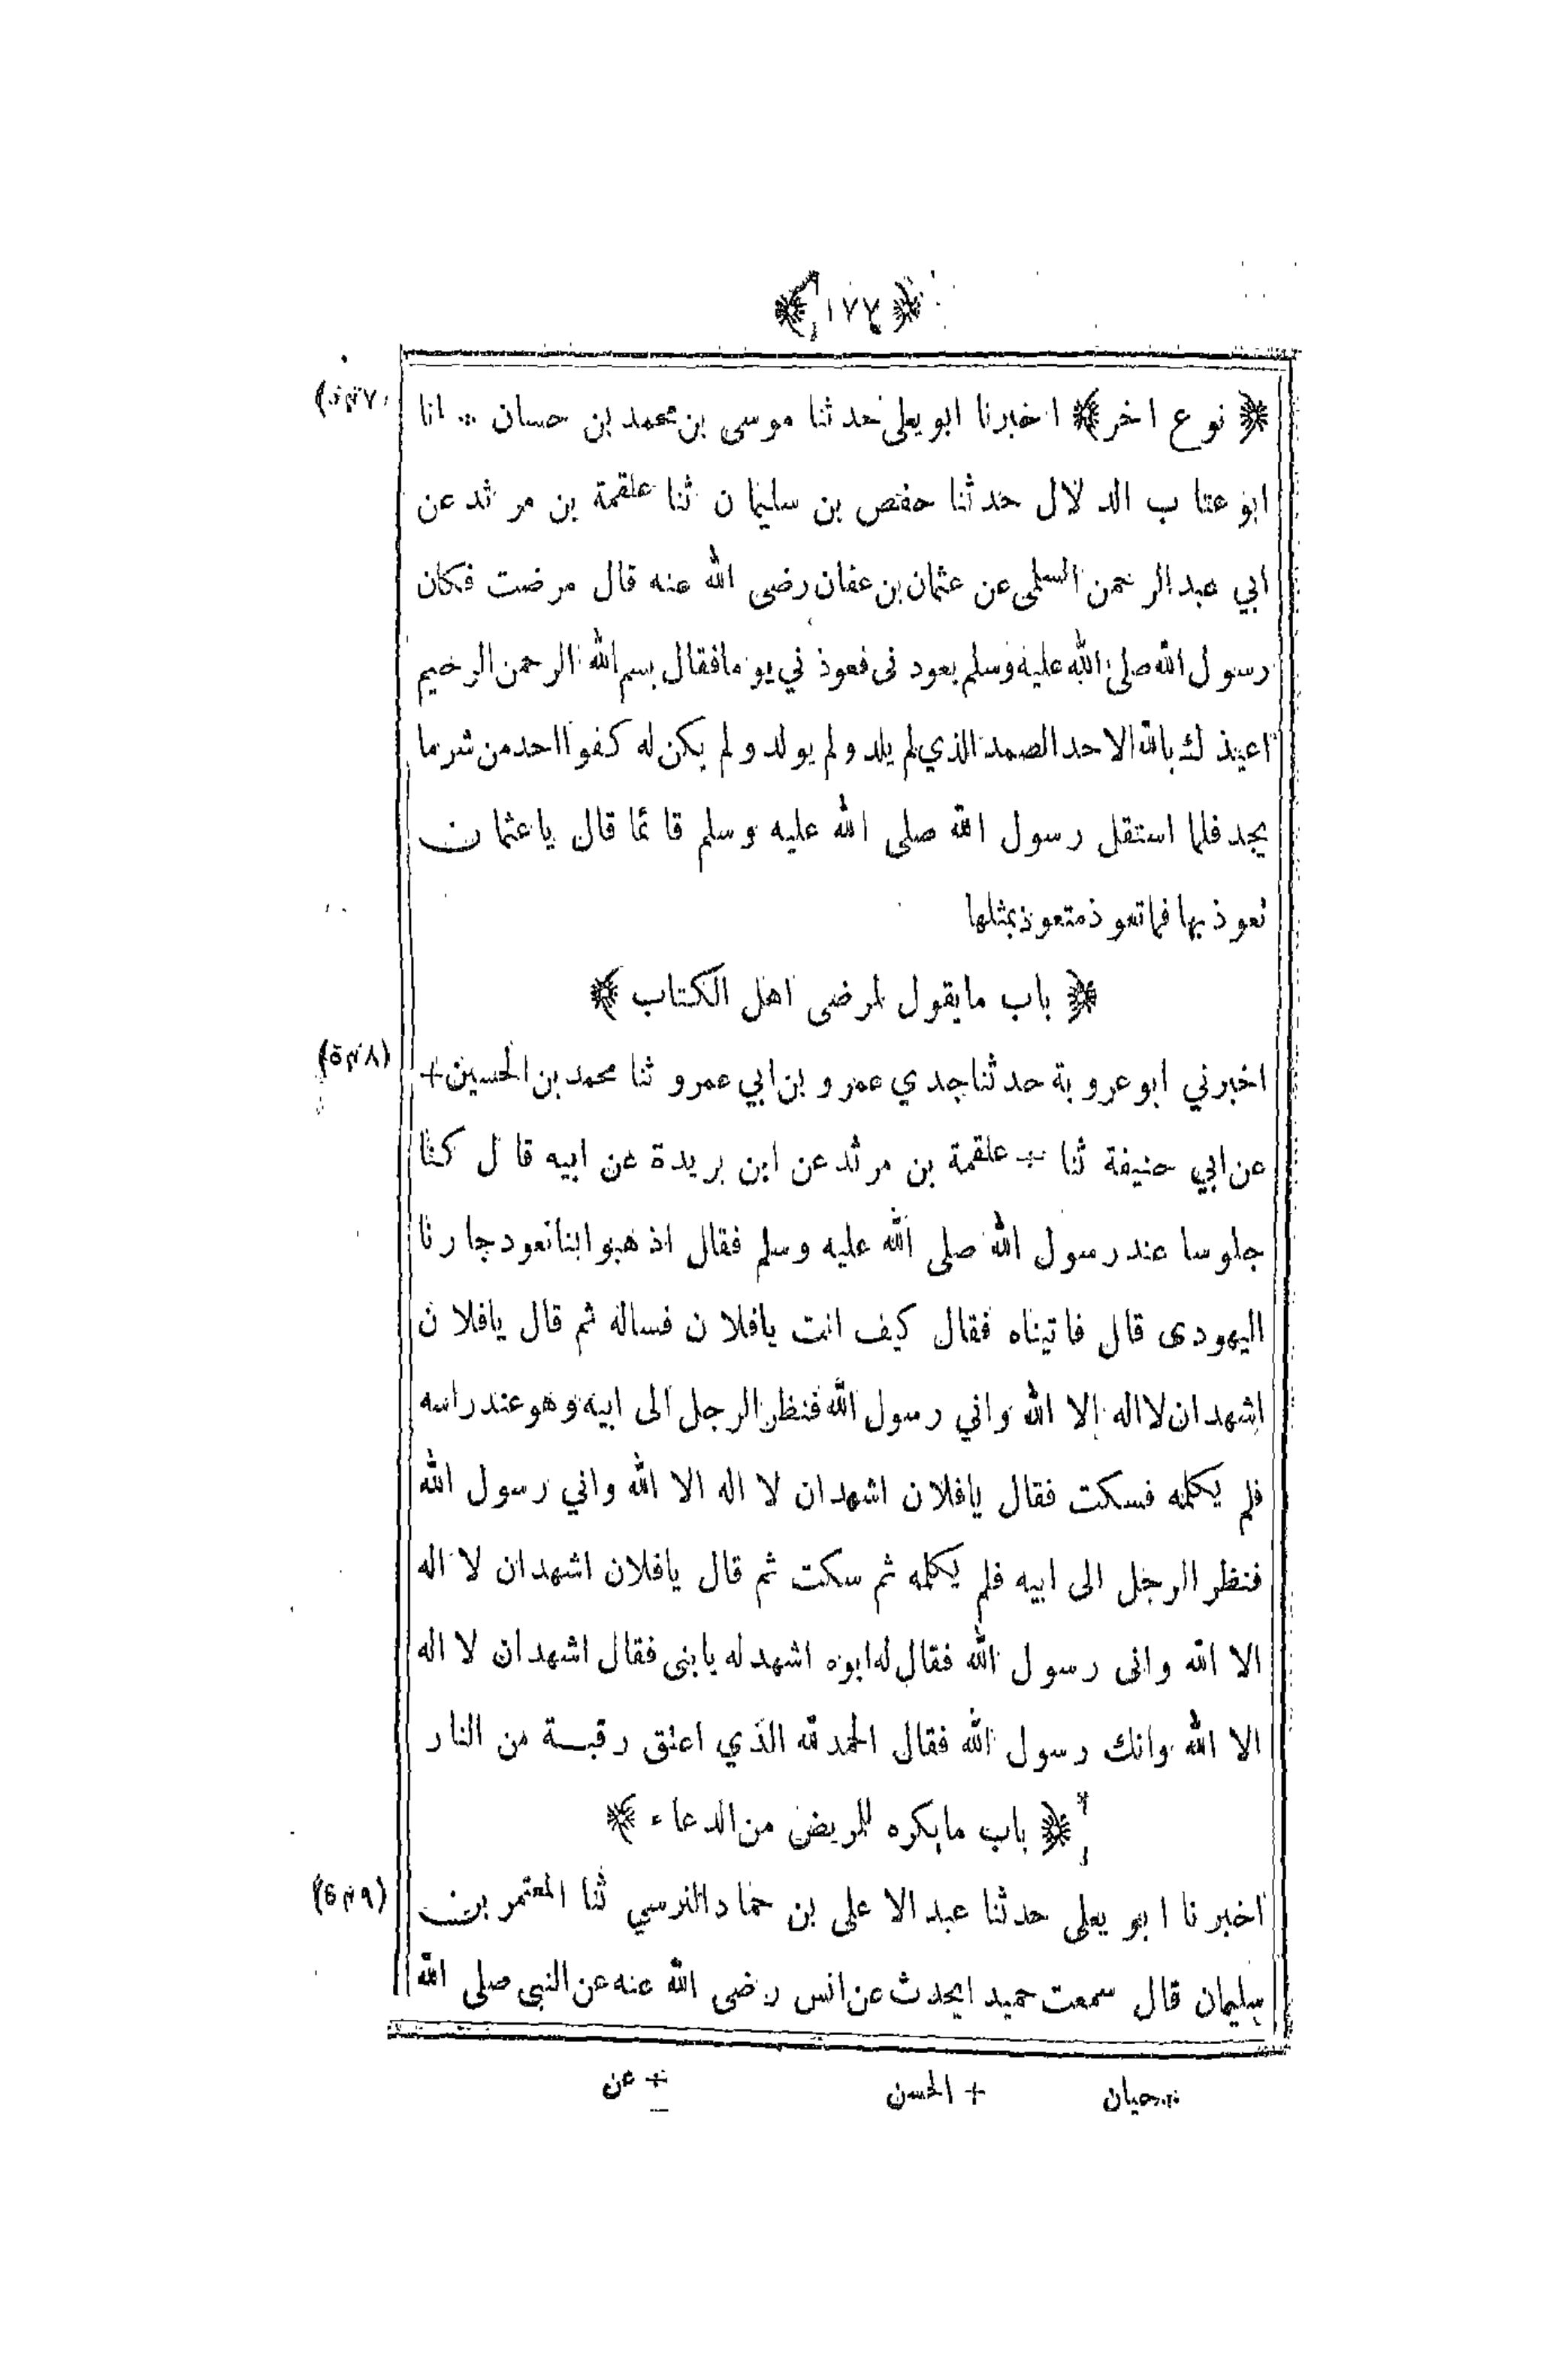 ﴿ ١٧٧ ﴾
﴿ نوع اخر ﴾ اخبرنا ابو يعلى حدثنا موسى بن محمد بن حسان ∴ انا
ابو عتاب الدلال حدثنا حفص بن سليمان ثنا علقمة بن مرثد عن
ابي عبد الرحمن السلمى عن عثمان بن عفان رضى الله عنه قال مرضت فكان
رسول الله صلى الله عليه وسلم يعودنى فعوذني يوما فقال بسم الله الرحمن الرحيم
اعيذك بالله الاحد الصمد الذي لم يلد ولم يولد ولم يكن له كفوا احد من شر ما
يجد فلما استقل رسول الله صلى الله عليه وسلم قائما قال يا عثمان
تعوذ بها فما تعوذ متعوذ بمثلها
﴿ باب ما يقول لمرضى اهل الكتاب ﴾
(٥٤٨)
اخبرني ابو عروبة حدثنا جدي عمرو بن ابي عمرو ثنا محمد بن الحسين +
عن ابي حنيفة ثنا ÷ علقمة بن مرثد عن ابن بريدة عن ابيه قال كنا
جلوسا عند رسول الله صلى الله عليه وسلم فقال اذهبوا بنا نعود جارنا
اليهودى قال فاتيناه فقال كيف انت يا فلان فساله ثم قال يا فلان
اشهد ان لا اله الا الله واني رسول الله فنظر الرجل الى ابيه وهو عند راسه
فلم يكلمه فسكت فقال يا فلان اشهد ان لا اله الا الله واني رسول الله
فنظر الرجل الى ابيه فلم يكلمه ثم سكت ثم قال يا فلان اشهد ان لا اله
الا الله وانى رسول الله فقال له ابوه اشهد له يا بنى فقال اشهد ان لا اله
الا الله وانك رسول الله فقال الحمد لله الذي اعتق رقبة من النار
﴿ باب ما يكره للمريض من الدعاء ﴾
(٥٤٩)
اخبرنا ابو يعلى حدثنا عبد الاعلى بن حماد النرسي ثنا المعتمر بن
سليمان قال سمعت حميدا يحدث عن انس رضى الله عنه عن النبى صلى الله
∴ حيان + الحسن ÷ عن